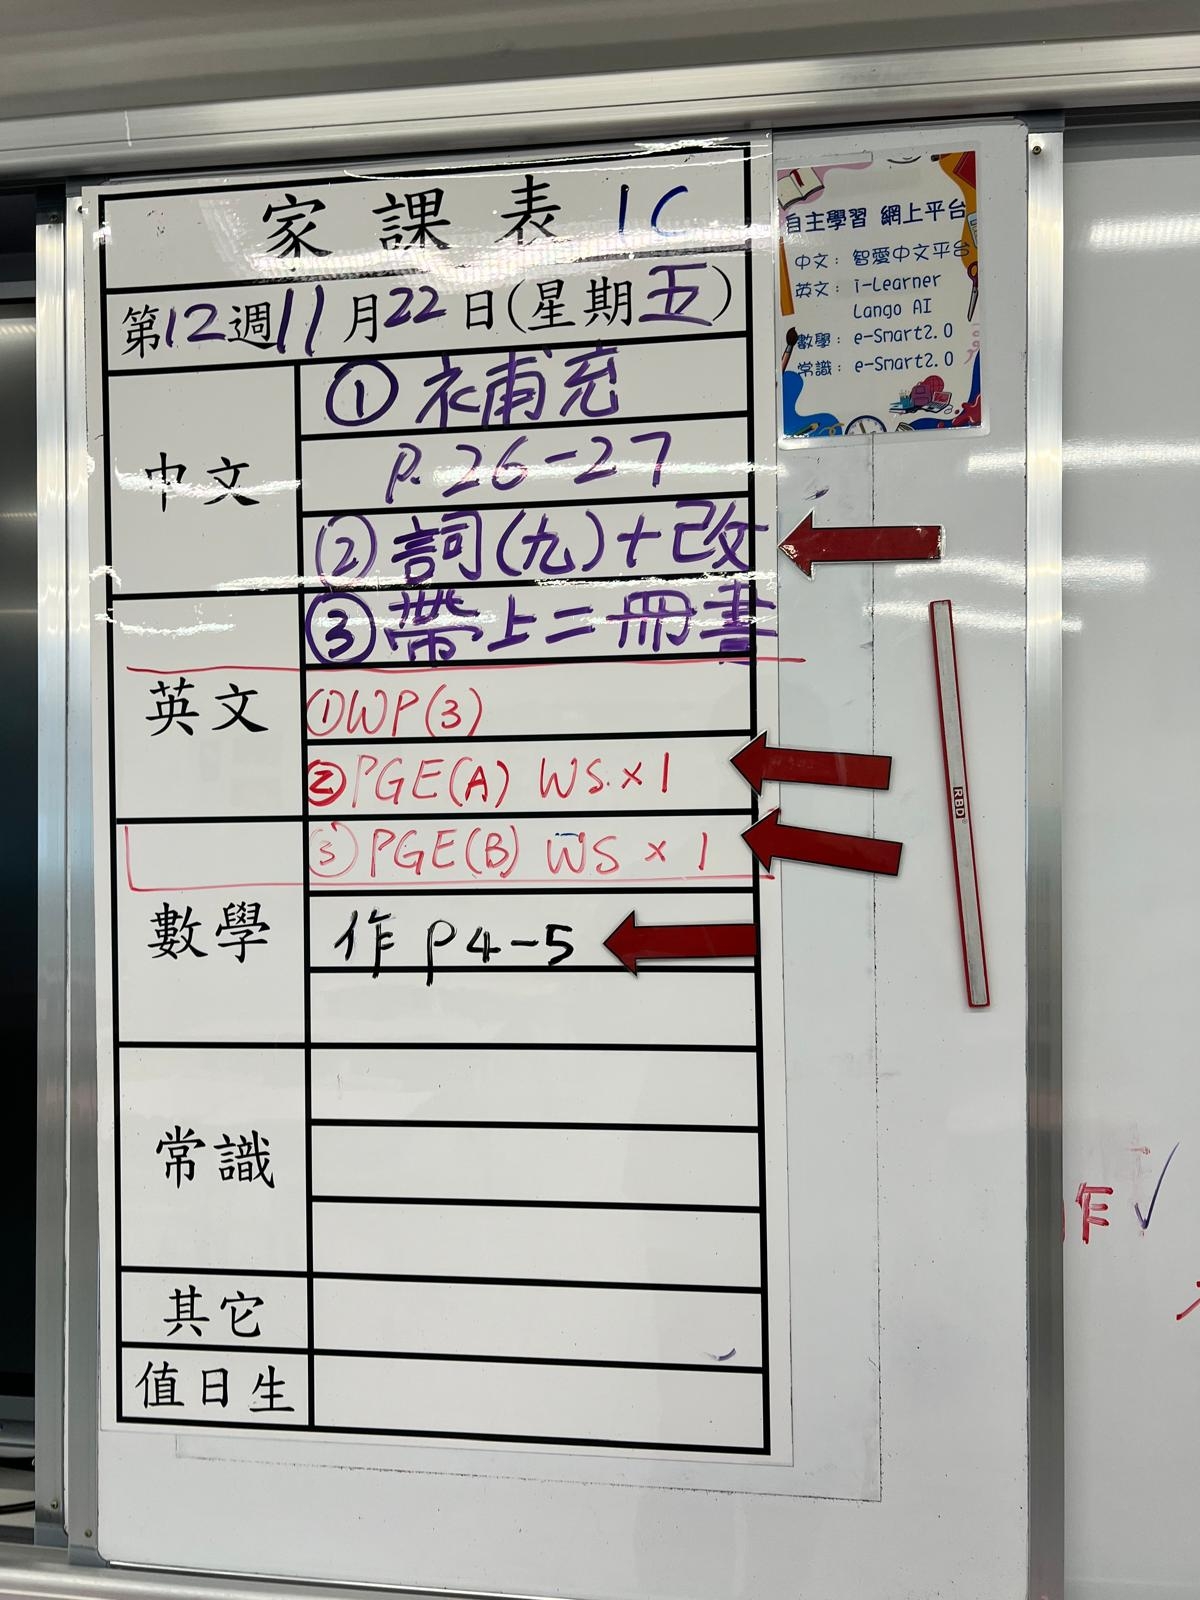 家課表 1C
第12週11月22日(星期五)
中文
① 補充
P. 26-27
② 詞(九)+改
③ 帶上二冊書
英文
① WP(3)
② PGE(A) WS. × 1
③ PGE(B) WS × 1
數學
作 P4-5
常識
其它
值日生
自主學習 網上平台
中文: 智愛中文平台
英文: i-Learner
Lango AI
數學: e-Smart2.0
常識: e-Smart2.0
RBD
作 ✓